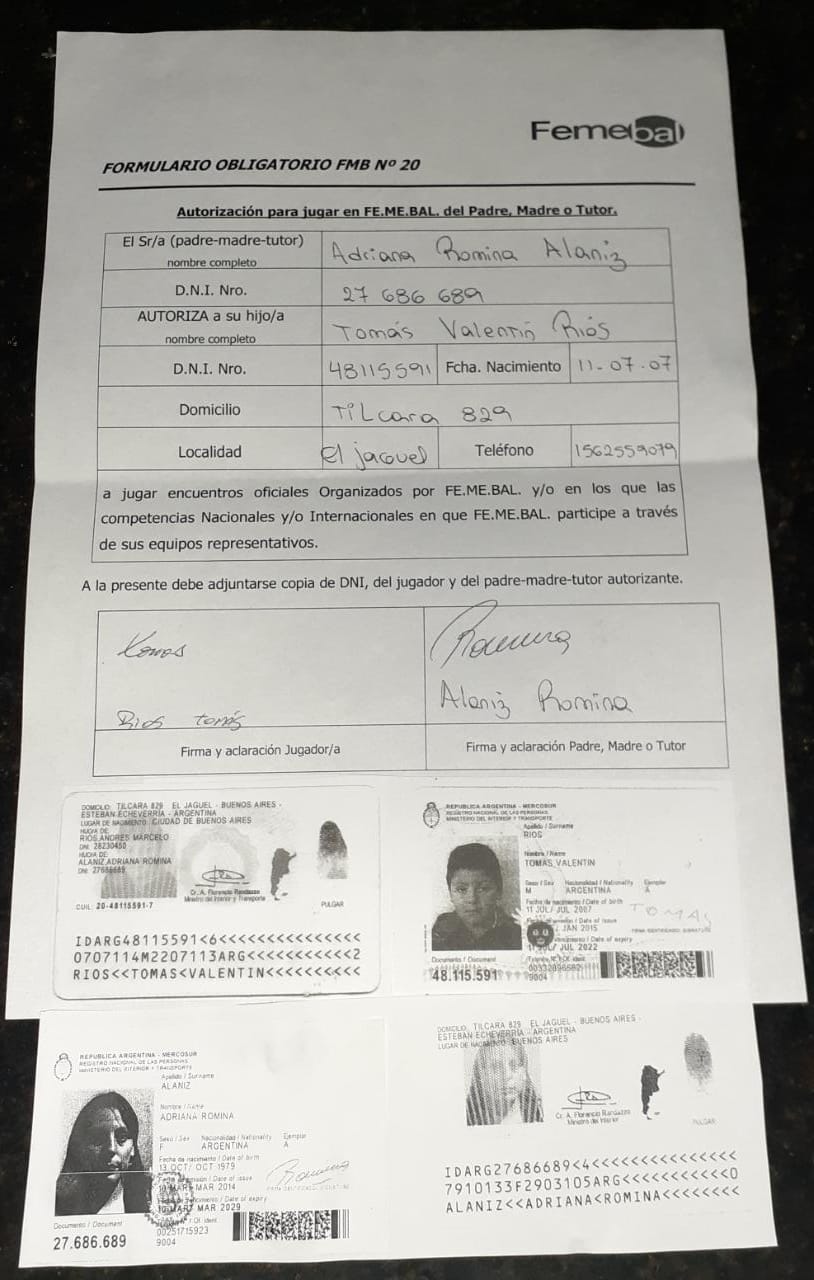 Femebal
FORMULARIO OBLIGATORIO FMB Nº 20
Autorización para jugar en FE.ME.BAL. del Padre, Madre o Tutor.
El Sr/a (padre-madre-tutor) nombre completo Adriana Romina Alaniz
D.N.I. Nro. 27 686 689
AUTORIZA a su hijo/a nombre completo Tomás Valentín Ríos
D.N.I. Nro. 48115591 Fcha. Nacimiento 11-07-07
Domicilio Tilcara 829
Localidad El jaguel Teléfono 1562559079
a jugar encuentros oficiales Organizados por FE.ME.BAL. y/o en los que las
competencias Nacionales y/o Internacionales en que FE.ME.BAL. participe a través
de sus equipos representativos.
A la presente debe adjuntarse copia de DNI, del jugador y del padre-madre-tutor autorizante.
Tomas
Rios tomás
Firma y aclaración Jugador/a
Romina
Alaniz Romina
Firma y aclaración Padre, Madre o Tutor
DOMICILIO: TILCARA 829 EL JAGUEL - BUENOS AIRES -
ESTEBAN ECHEVERRÍA - ARGENTINA
LUGAR DE NACIMIENTO: CIUDAD DE BUENOS AIRES
HIJO/A DE:
RIOS ANDRES MARCELO
DNI: 28230450
HIJO/A DE:
ALANIZ ADRIANA ROMINA
DNI: 27686689
Cr. A. Florencio Randazzo
Ministro del Interior y Transporte
CUIL: 20-48115591-7
PULGAR
IDARG48115591<6<<<<<<<<<<<<<<<
0707114M2207113ARG<<<<<<<<<<<2
RIOS<<TOMAS<VALENTIN<<<<<<<<<<
REPUBLICA ARGENTINA - MERCOSUR
REGISTRO NACIONAL DE LAS PERSONAS
MINISTERIO DEL INTERIOR Y TRANSPORTE
Apellido / Surname
RIOS
Nombre / Name
TOMAS VALENTIN
Sexo / Sex Nacionalidad / Nationality Ejemplar
M ARGENTINA A
Fecha de nacimiento / Date of birth
11 JUL/ JUL 2007
Date of issue
JAN 2015
TOMAS
Date of expiry
JUL 2022
Documento / Document
48.115.591
9004
REPUBLICA ARGENTINA - MERCOSUR
REGISTRO NACIONAL DE LAS PERSONAS
MINISTERIO DEL INTERIOR Y TRANSPORTE
Apellido / Surname
ALANIZ
Nombre / Name
ADRIANA ROMINA
Sexo / Sex Nacionalidad / Nationality Ejemplar
F ARGENTINA A
Fecha de nacimiento / Date of birth
13 OCT/ OCT 1979
Date of issue
MAR 2014
Romina
Date of expiry
10 MAR/ MAR 2029
Documento / Document
27.686.689
00251715923
9004
DOMICILIO: TILCARA 829 EL JAGUEL - BUENOS AIRES -
ESTEBAN ECHEVERRÍA - ARGENTINA
LUGAR DE NACIMIENTO: BUENOS AIRES
Cr. A. Florencio Randazzo
Ministro del Interior
PULGAR
IDARG27686689<4<<<<<<<<<<<<<<<
7910133F2903105ARG<<<<<<<<<<<0
ALANIZ<<ADRIANA<ROMINA<<<<<<<<